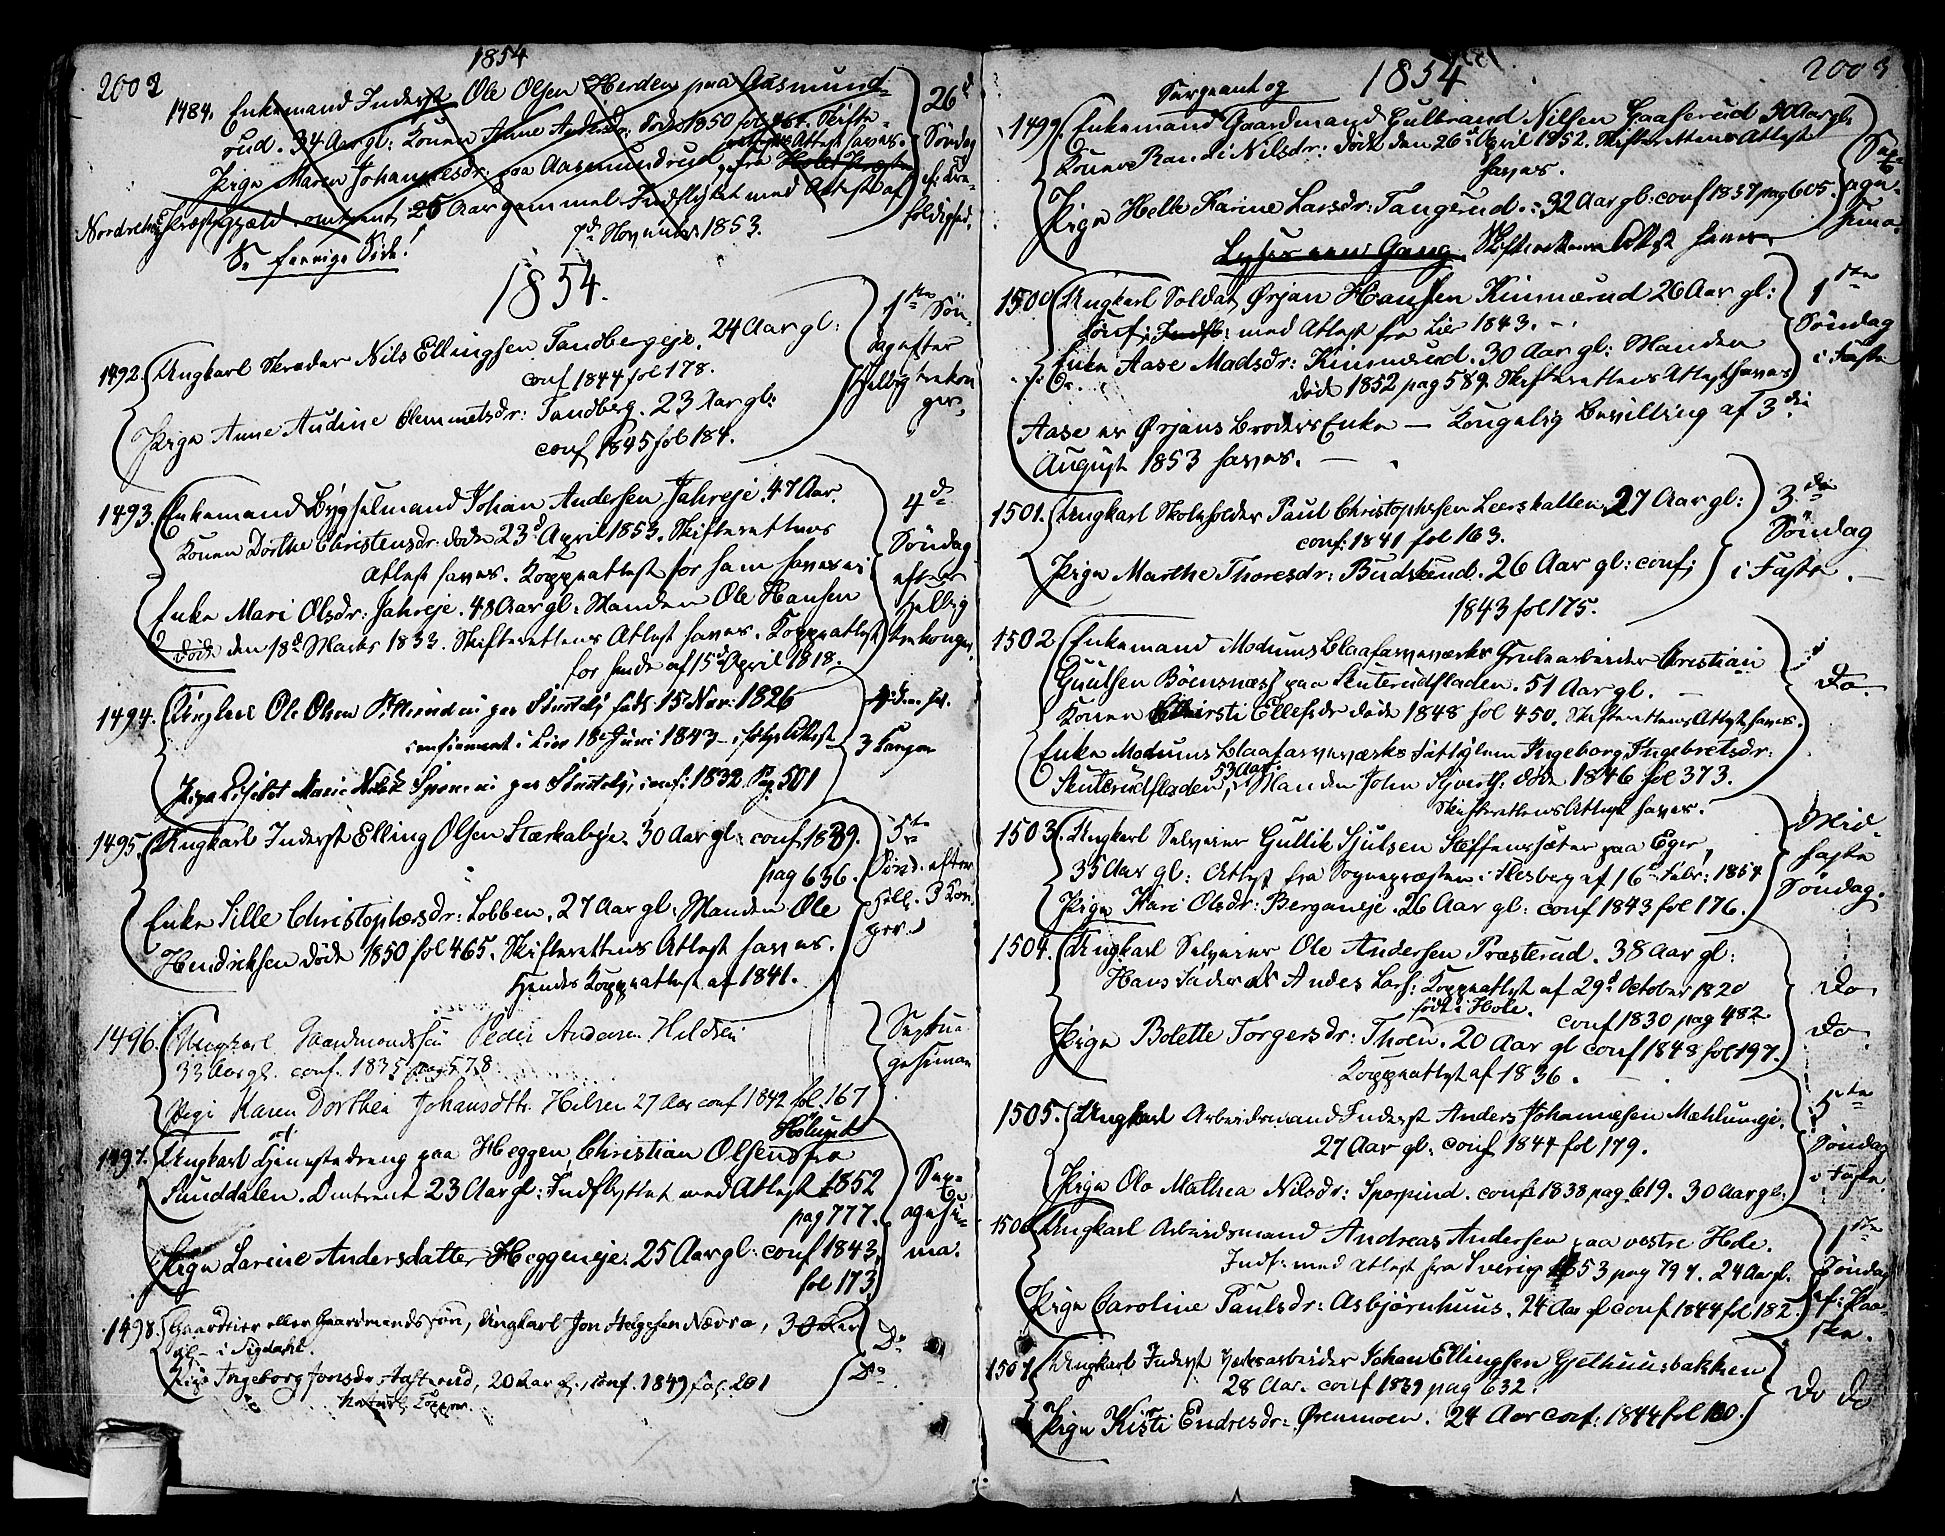 2002
1854
1484. Enkemand Inderst Ole Olsen Herden paa Aasmund-
rud. 34 Aar gl: Konen Anne Andersdr: døde 1850 fol 461. Skifte-
rettens Attest haves.
Pige Maren Johannesdr: paa Aasmundrud, fra
Nordrehoug Præstegjæld omtrent 25 Aar gammel Indflyttet med Attest af
7d November 1853.
26d Søndag ef: Tre-
foldighed.
Se forrige Side!
1854.
1492. Ungkarl Skræder Nils Ellingsen Tandbergeje. 24 Aar gl:
conf 1844 fol 178.
Pige Anne Audine Clemmetsdr: Tandberg. 23 Aar gl:
conf 1845 fol 184.
1ste Søn-
dag efter
Hellig trekon
ger.
1493. Enkemand Bygselmand Johan Andersen Jahreje. 47 Aar.
Konen Dorthe Christensdr: døde 23d April 1853. Skifterettens
Attest haves. Koppeattest for ham haves ei
Enke Mari Olsdr: Jahreje. 48 Aar gl: Manden Ole Hansen
døde den 18d Marts 1833. Skifterettens Attest haves. Koppeattest
for hende af 15d April 1818.
4d
Søndag
efter
Hellig
trekonger.
1494. Ungkarl Ole Olsen født 15 Nov: 1826
confirmeret i Lier 18 Juni 1843 ifølge Attest
Pige Lisebet Marie Nilsd conf: 1832 Pg. 501
3 Konger
1495. Ungkarl Inderst Elling Olsen Stærkabye. 30 Aar gl: conf 1839.
pag 636.
Enke Sille Christophersdr: Lobben. 27 Aar gl: Manden Ole
Hendriksen døde 1850 fol 465. Skifterettens Attest haves.
Hendes Koppeattest af 1841.
5te
Sønd. efter
Hell. 3 Kon
ger.
1496. Ungkarl Gaardmandssøn Peder Andersen Hilsen
33 Aar gl. conf. 1835 pag 578
Pige Karen Dorthea Johansdttr. Hilsen 27 Aar conf 1842 fol. 167
Septua
gesima
1497. Ungkarl Tjenestedreng paa Heggen, Christian Olsen fra
Holund
Sunddalen. Omtrent 23 Aar gl: Indflyttet med Attest 1852
pag 777.
Pige Larine Andersdatter Heggeneje. 25 Aar gl: conf 1843.
fol 173.
Sex-
agesi-
ma.
1498. Gaardeier eller Gaardmandssøn, Ungkarl Jon Helgesen Nævra, 30 Aar
gl - i Sigdahl.
Pige Ingeborg Jonsdr 20 Aar gl, conf. 1849 fol: 201
Do
Do
2003
1854
Sergeant og
1499. Enkemand Gaardmand Gulbrand Nilsen Gaaserud 30 Aar gl:
Konen Randi Nilsdr: døde den 26d April 1852. Skifterettens Attest
haves.
Pige Helle Karine Larsdr: Tangerud. 32 Aar gl: conf 1837 pag 605.
Lyser een Gang. Skifterettens Attest haves
Sep-
age-
sima.
1500 Ungkarl Soldat Ørjan Hansen Kinnærud 26 Aar gl:
conf: Indfl: med Attest fra Lier 1843.
Enke Aase Madsdr: Kinnærud. 30 Aar gl: Manden
døde 1852 pag 589. Skifterettens Attest haves
Aase er Ørjans Broders Enke — Kongelig Bevilling af 3die
August 1853 haves. —
1ste
Søndag
i Faste
1501. Ungkarl Skoleholder Paul Christophersen Leerskallen. 27 Aar gl:
conf: 1841 fol 163.
Pige Marthe Thoresdr: Budskud. 26 Aar gl: conf:
1843 fol 175.
3die
Søndag
i Faste. —
1502 Enkemand Modums Blaafarveværks Grubearbeider Christian
Guulsen Bøensnæss paa Skuterudfladen. 51 Aar gl.
Konen Kirsti Ellefsdr døde 1848 fol 450. Skifterettens Attest haves.
Enke Modums Blaafarveværks Fattiglem Ingeborg Ingebretsdr:
Skuterudfladen, 53 Aar. Manden John Siverts: døde 1846 fol 373.
Skifterettens Attest haves.
Do.
1503. Ungkarl Selveier Gullik Sjulsen Steffenssæter paa Eger,
35 Aar gl: Attest fra Sognepræsten i Flesberg af 16d Febr: 1854
Pige Kari Olsdr: Berganeje. 26 Aar gl: conf 1843 fol 176.
Mid-
faste
Søndag.
1504. Ungkarl Selveier Ole Andersen Præsterud. 38 Aar gl:
Hans Fader er Anders Lars: Koppeattest af 29d October 1820
født i Hole.
conf 1830 pag 482
Pige Bolette Torgersdr: Thoen. 20 Aar gl conf 1848 fol 197.
Koppeattest af 1836.
Do
Do
1505. Ungkarl Arbeidsmand Inderst Anders Johannesen Mæhlumeje.
27 Aar gl: conf 1844 fol 179.
Pige Olo Mathea Nilsdr: Sporpind. conf 1838 pag. 619. 30 Aar gl:
5te
Søndag
i Faste.
1506 Ungkarl Arbeidsmand Andreas Andersen paa vestre Hole.
Indf: med Attest fra Sverig 1853 pag 797. 24 Aar gl.
Pige Caroline Paulsdr: Asbjørnhuus. 24 Aar gl conf 1844 fol 182.
1ste
Søndag
ef: Paa-
ske.
1507 Ungkarl Inderst Johan Ellingsen Gjethuusbakken
28 Aar. conf 1839 pag 632.
Pige Kisti Endresdr: Ørenmoen. 24 Aar conf: 1844 fol 180.
Do Do